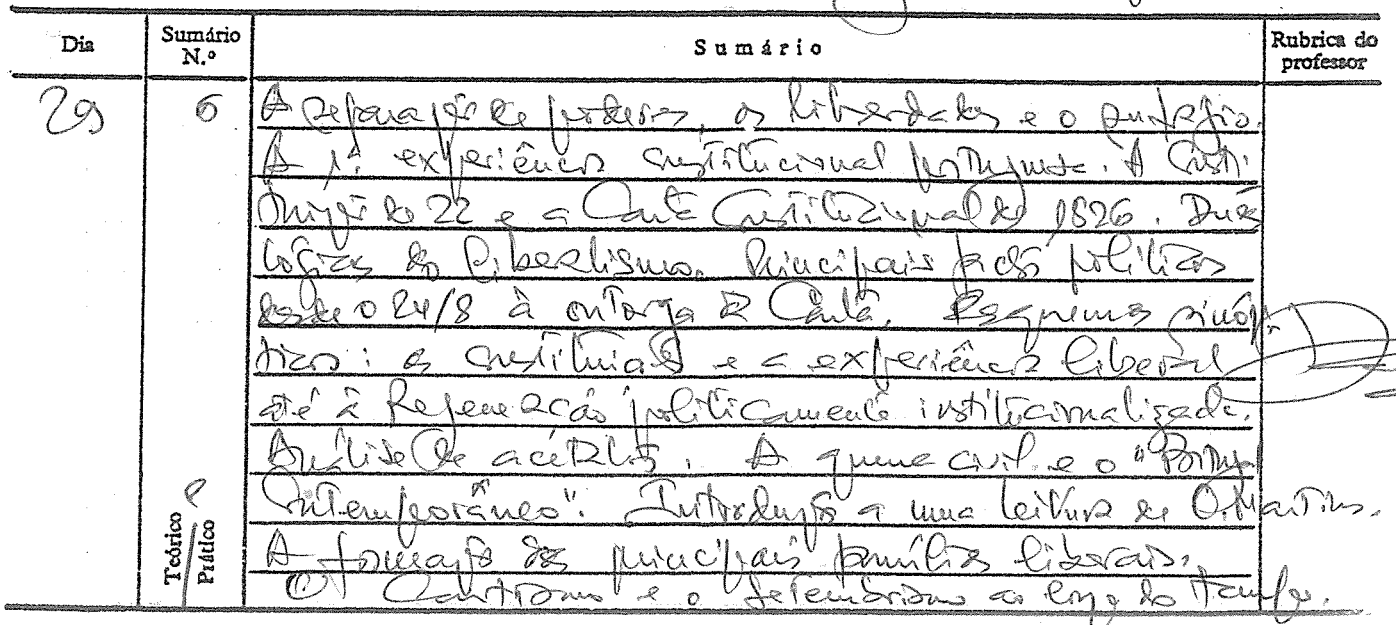 Dia Sumário N.º Sumário Rubrica do professor
29 6 A separação de poderes, as liberdades e o sufrágio.
A 1ª experiência constitucional portuguesa. A Consti-
tuição de 22 e a Carta Constitucional de 1826. Duas
lógicas do liberalismo. Principais factos políticos
desde o 24/8 à outorga da Carta. Esquemas sinóp-
ticos: as constituições e a experiência liberal
até à Regeneração politicamente institucionalizada.
Análise de acetatos. A guerra civil e o "Portugal
Contemporâneo". Introdução a uma leitura de O. Martins.
A formação das principais famílias liberais.
O Cartismo e o Setembrismo ao longo do tempo.
Teórico / Prático